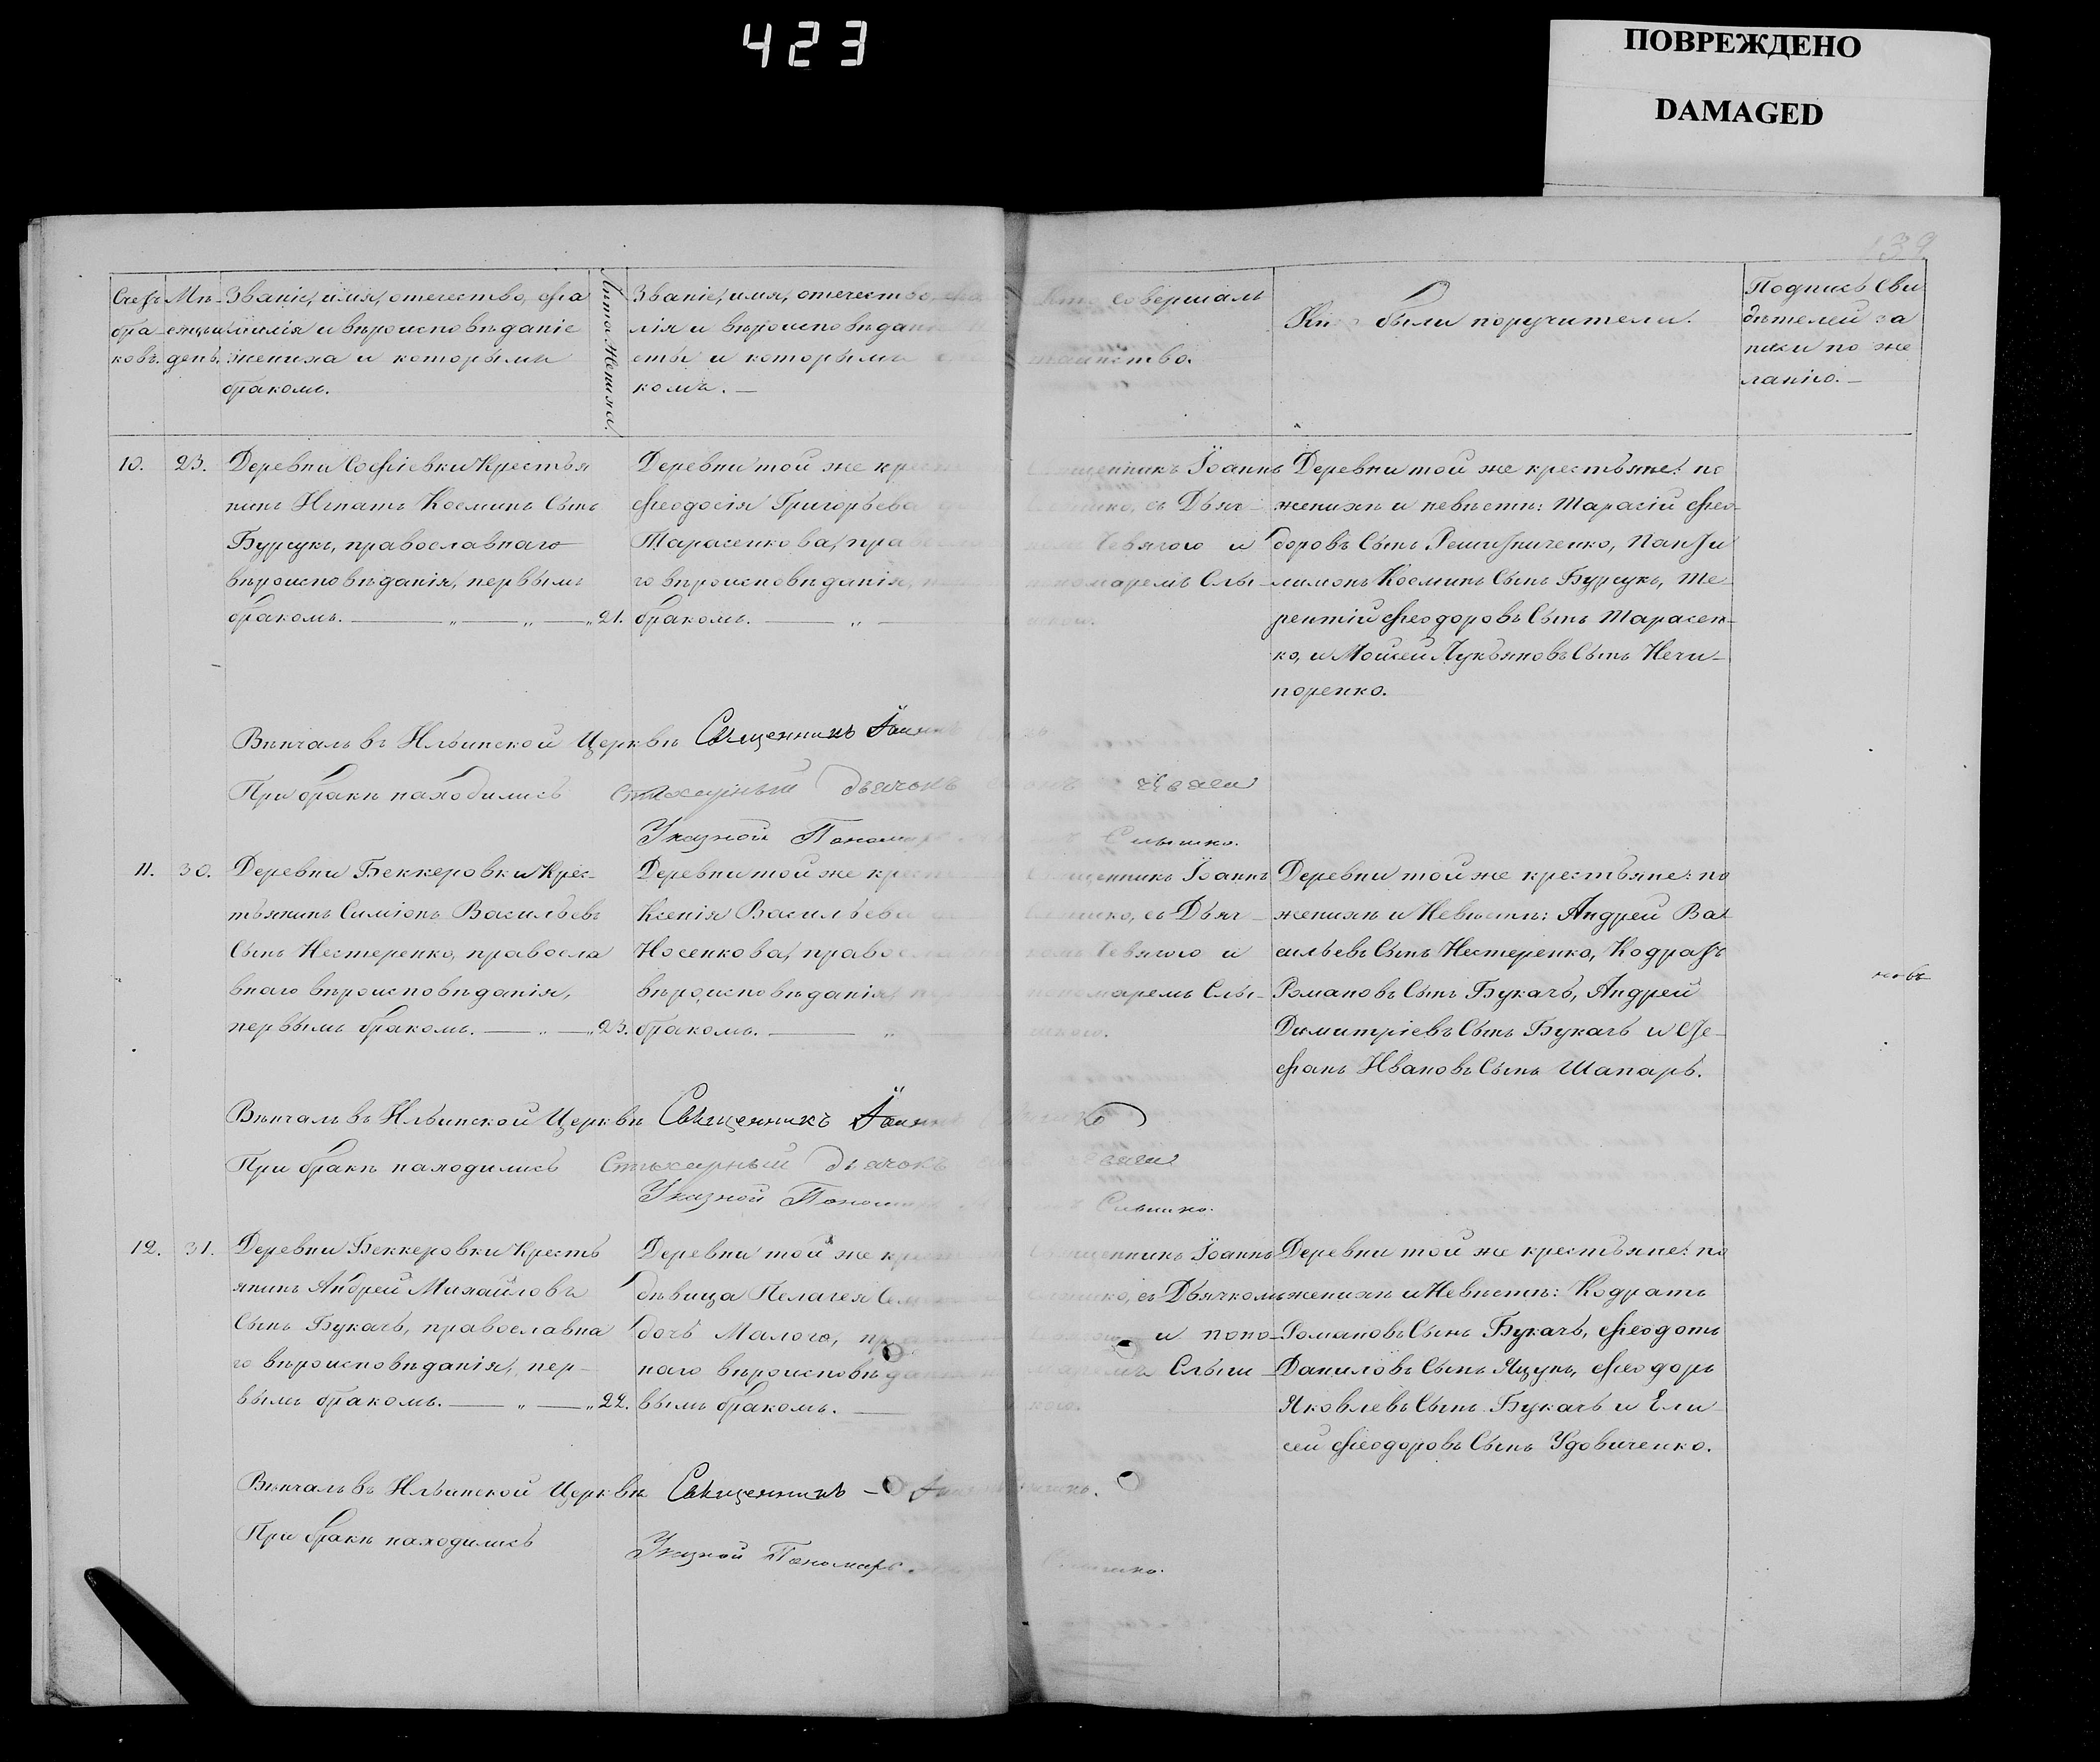 423
ПОВРЕЖДЕНО
DAMAGED
139
Счетъ бра-ковъ.
Мѣ-сяцъ и день.
Званіе, имя, отечество, фа
милія и вѣроисповѣданіе
жениха и которымъ
бракомъ.
Лѣта Жениха.
Званіе, имя, отечество, фа
лія и вѣроисповѣданіе
сты и которымъ
комъ. —
Кто совершалъ
таинство.
Кто были поручители.
Подписъ Сви
дѣтелей за
писи по же
ланію. —
10. 23.
Деревни Софіевки Крестья
нинъ Игнатъ Косминъ Сынъ
Бурсукъ, православнаго
вѣроисповѣданія, первымъ
бракомъ. — „ — „ — „ 21.
Деревни той же
Феодосія Григорьева
Тарасенкова,
го вѣроисповѣданія,
бракомъ. — „ —
Священникъ Іоаннъ
съ Дьяч-
Чевягою и
пономаремъ Слы-
Деревни той же крестьяне: по
женихѣ и невѣстѣ: Тарасій Фео-
доровъ Сынъ
лимонъ Косминъ Сынъ Бурсукъ, Те-
рентій Феодоровъ Сынъ Тарасен-
ко, и Моисей Лукьяновъ Сынъ Нечи-
поренко.
Вѣнчалъ въ Ильинской Церквѣ Священникъ Іоаннъ
При бракѣ находились Стихарный дьячокъ
Указной Пономарь Слышко.
11. 30.
Деревни Беккеровки Крес-
тьянинъ Симіонъ Васильевъ
Сынъ Нестеренко, правосла
внаго вѣроисповѣданія,
первымъ бракомъ. — „ — „ 23.
Деревни той же
Ксенія Васильева
Носенкова,
вѣроисповѣданія,
бракомъ. — „
Священникъ Іоаннъ
съ Дьяч-
Чевягою и
пономаремъ Слы-
Деревни той же крестьяне: по
женихѣ и Невѣстѣ: Андрей Ва
сильевъ Сынъ Нестеренко, Кодратъ
Романовъ Сынъ Букачъ, Андрей
Димитріевъ Сынъ Букачъ и Сте-
фанъ Ивановъ Сынъ Шапарь.
Вѣнчалъ въ Ильинской Церквѣ Священникъ Іоаннъ
При бракѣ находились Стихарный дьячокъ
Указной Пономарь Слышко.
12. 31.
Деревни Беккеровки Кресть
янинъ Андрей Михайловъ
Сынъ Букачъ, православна
го вѣроисповѣданія, пер-
вымъ бракомъ. — „ — „ 22.
Деревни той же
дѣвица Пелагея
дочь Малого,
наго вѣроисповѣданія
вымъ бракомъ. —
Священникъ Іоаннъ
съ Дьячкомъ
и поно-
маремъ Слыш-
Деревни той же крестьяне: по
женихѣ и Невѣстѣ: Кодратъ
Романовъ Сынъ Букачъ, Феодотъ
Даниловъ Сынъ Яцунъ, Феодоръ
Яковлевъ Сынъ Букачъ и Ели
сей Феодоровъ Сынъ Удовиченко.
Вѣнчалъ въ Ильинской Церквѣ Священникъ —
При бракѣ находились
Указной Пономарь Слышко.